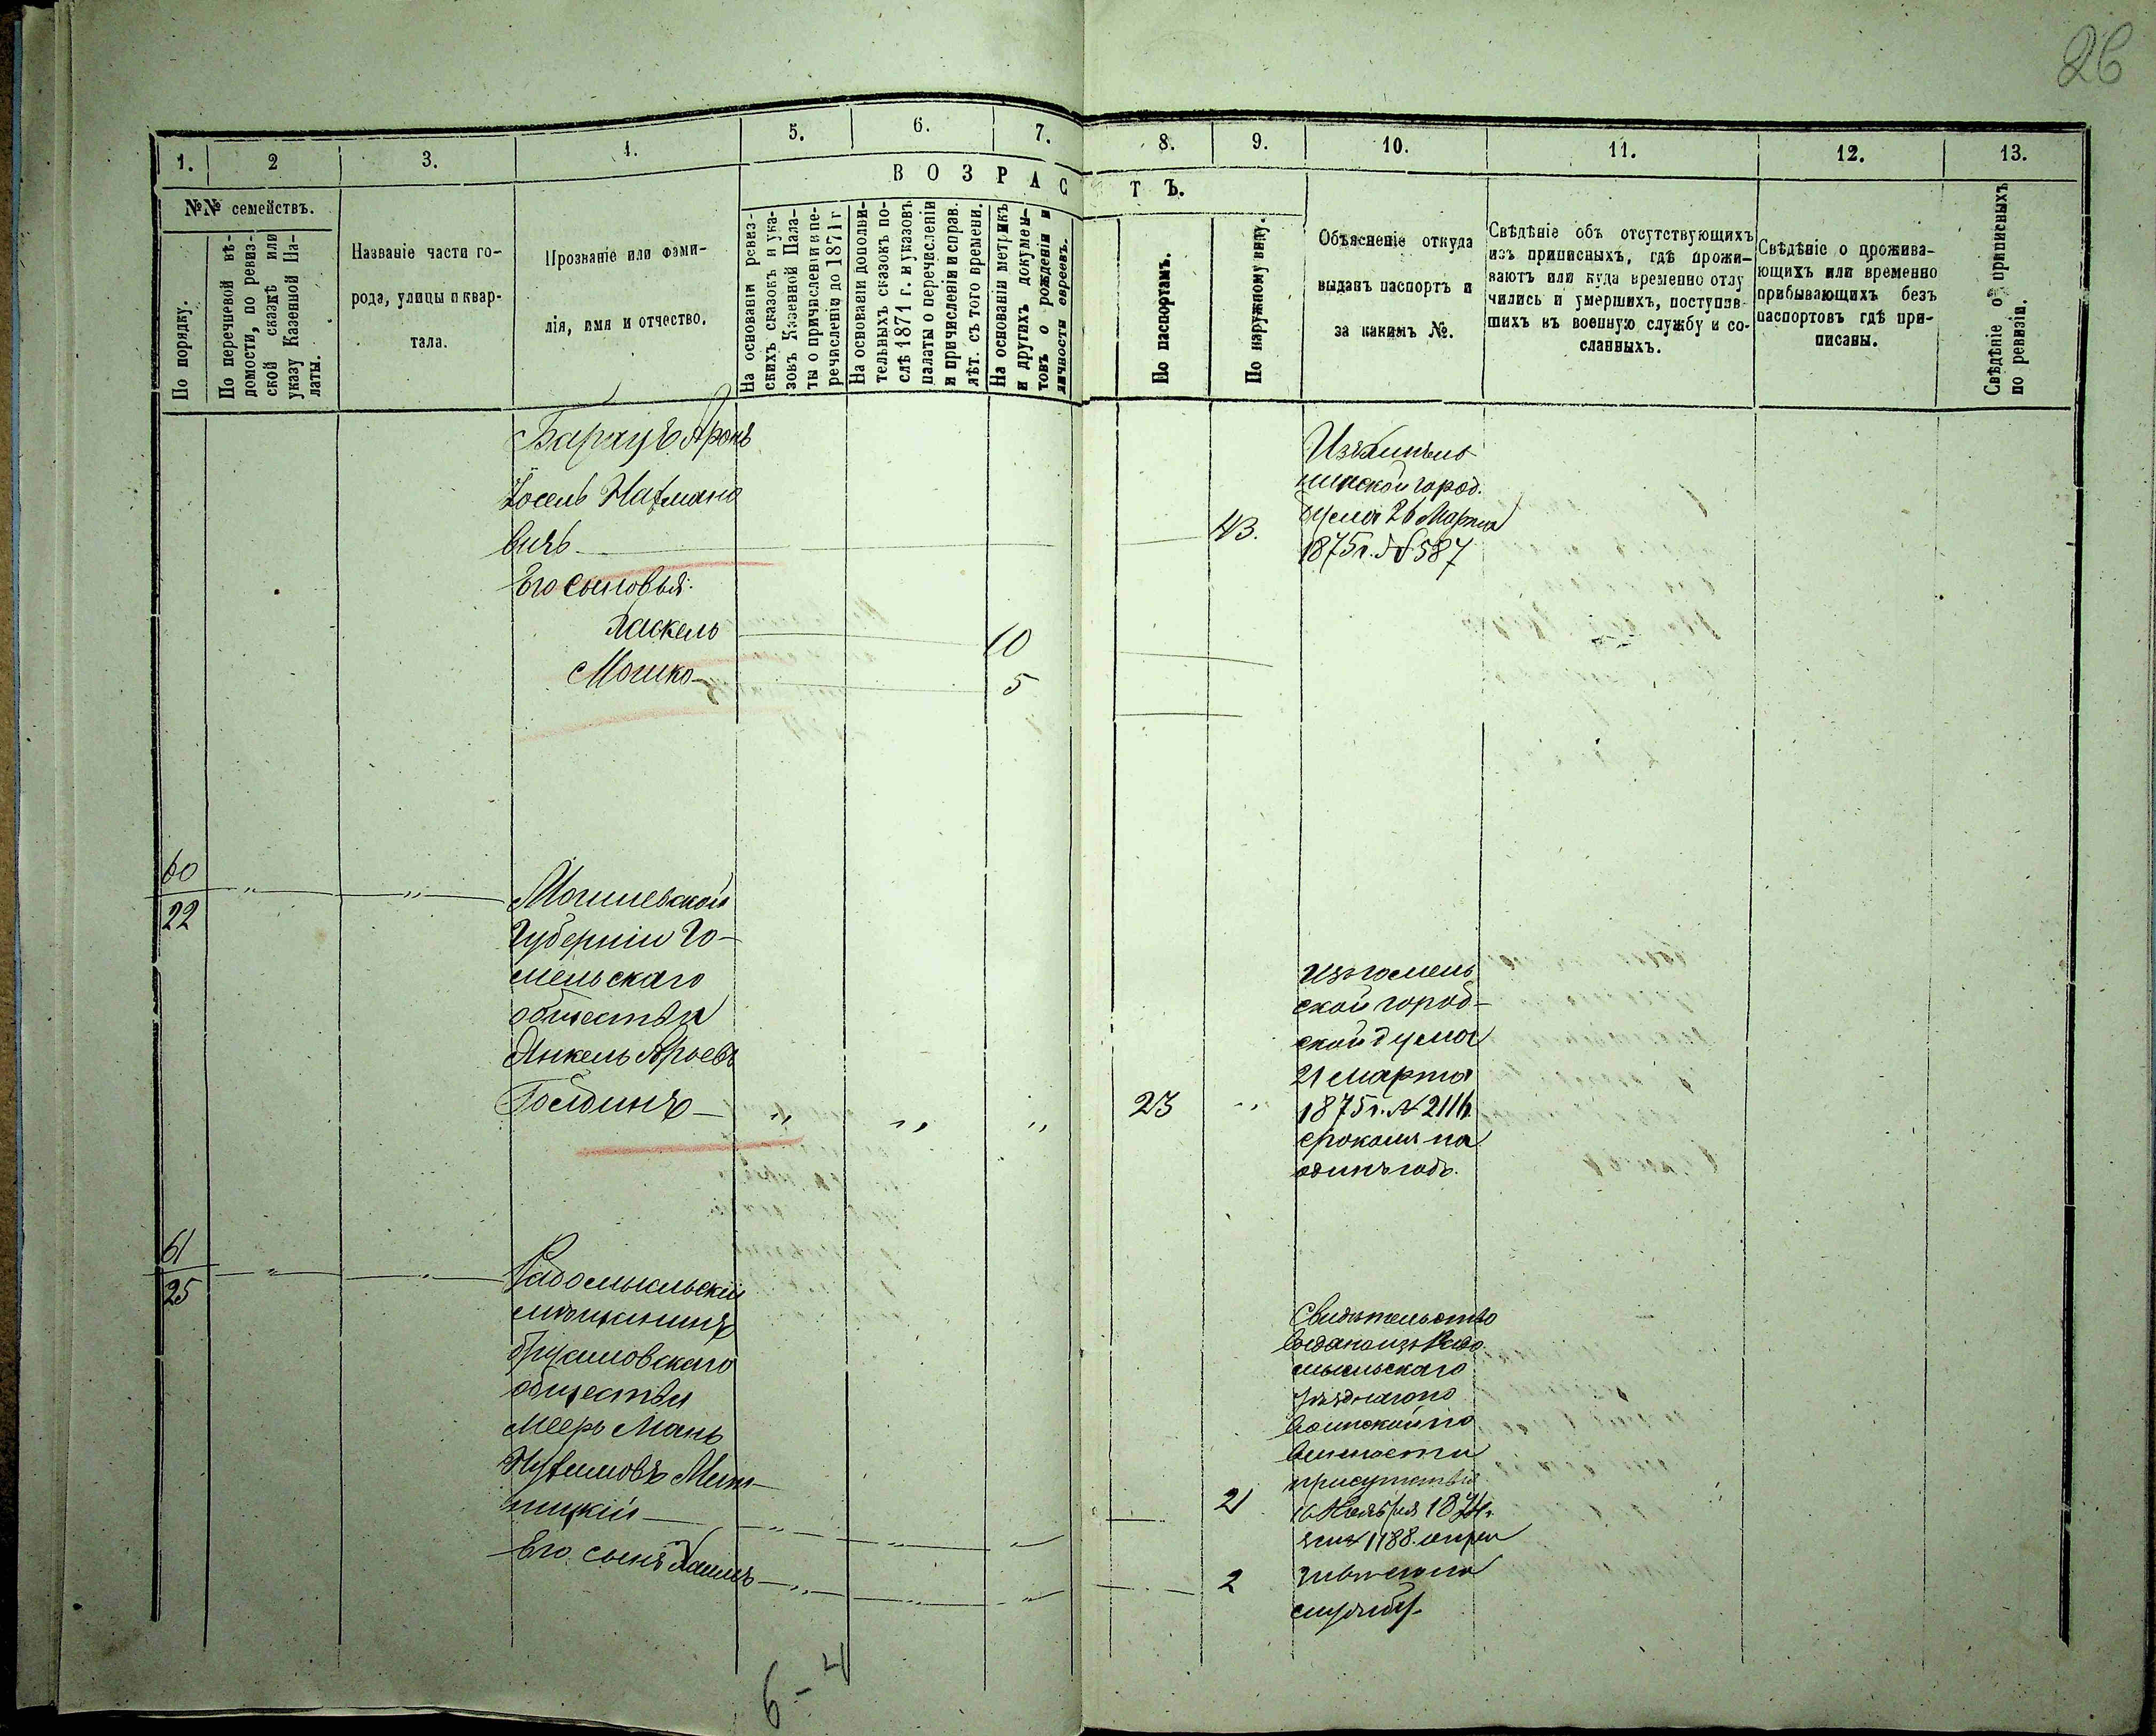 26
1.
2
3.
4.
5.
6.
7.
8.
9.
10.
11.
12.
13.
№№ семействъ.
По порядку.
По перечневой вѣ-
домости, по ревиз-
ской сказкѣ или
указу Казенной Па-
латы.
Названіе части го-
рода, улицы и квар-
тала.
Прозваніе или фами-
лія, имя и отчество.
ВОЗРАСТЪ.
На основаніи ревиз-
скихъ сказокъ и ука-
зовъ Казенной Пала-
ты о причисленіи и пе-
речисленіи до 1871 г
На основаніи дополни-
тельныхъ сказокъ по-
слѣ 1871 г. и указовъ
палаты о перечисленіи
и причисленіи и справ.
лѣт. съ того времени.
На основаніи метрикъ
и другихъ докумен-
товъ о рожденіи и
личности евреевъ.
По паспортамъ.
По наружному виду.
Объясненіе откуда
выданъ паспортъ и
за какимъ №.
Свѣдѣніе объ отсутствующихъ
изъ приписныхъ, гдѣ прожи-
ваютъ или куда временно отлу
чились и умершихъ, поступив-
шихъ въ военную службу и со-
сланныхъ.
Свѣдѣніе о прожива-
ющихъ или временно
прибывающихъ безъ
паспортовъ гдѣ при-
писаны.
Свѣдѣніе о приписныхъ
по ревизіи.
Аронъ
Іосель Нахмано
вичъ
43.
Его сыновья:
Хаскель 10
Мошко 5
город.
Думы 26 Марта
1875 г. № 587
60
22
Могилевской
Губерніи Го-
мельскаго
общества
Янкель Арьевъ
Голдинъ " " " 23 "
Изъ гомель
ской город-
ской думы
21 марта
1875 г. № 2116
срокомъ на
одинъ годъ.
61
25
Радомысльскій
мѣщанинъ
брусиловскаго
общества
Мееръ Мань
21
Его сынъ Хаимъ 2
Свидетельство
выдано изъ Радо
мысльскаго
уѣзднаго по
воинской по
винности
присутствія
16 Ноября 1874 г.
за № 1188.
службу.
6 - 4